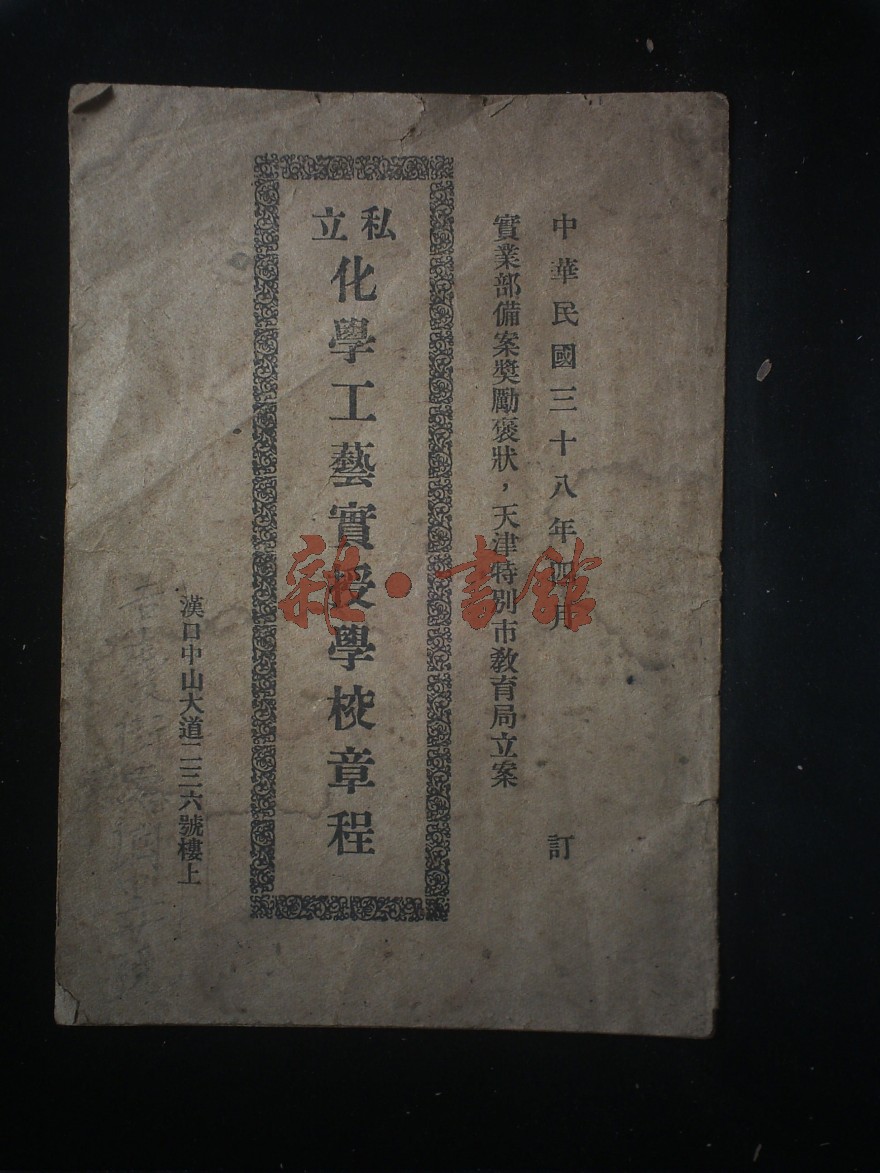 中華民國三十八年四月　訂
實業部備案獎勵褒狀，天津特別市教育局立案
私立
化學工藝實授學校章程
漢口中山大道二三六號樓上
雜·書館